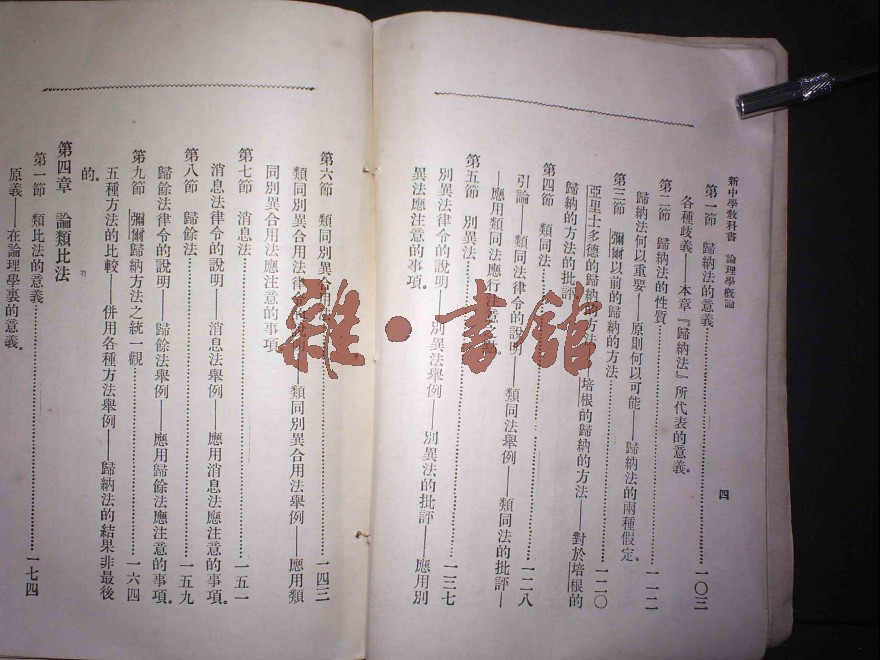 新中學教科書 論理學概論
四
第一節 歸納法的意義……一〇三
各種歧義——本章『歸納法』所代表的意義。
第二節 歸納法的性質……一一二
歸納法何以重要——原則何以可能——歸納法的兩種假定。
第三節 彌爾以前的歸納的方法……一二〇
亞里士多德的歸納的方法——培根的歸納的方法——對於培根的
歸納的方法的批評
第四節 類同法……一二八
引論——類同法律令的說明——類同法舉例——類同法的批評—
—應用類同法應行注意
第五節 別異法……一三七
別異法律令的說明——別異法舉例——別異法的批評——應用別
異法應注意的事項。
第六節 類同別異合用……一四三
類同別異合用法律令——類同別異合用法舉例——應用類
同別異合用法應注意的事項
第七節 消息法……一五一
消息法律令的說明——消息法舉例——應用消息法應注意的事項。
第八節 歸餘法……一五九
歸餘法律令的說明——歸餘法舉例——應用歸餘法應注意的事項。
第九節 彌爾歸納方法之統一觀……一六四
五種方法的比較——併用各種方法舉例——歸納法的結果非最後
的。
第四章 論類比法
第一節 類比法的意義……一七四
原義——在論理學裏的意義。
雜·書館